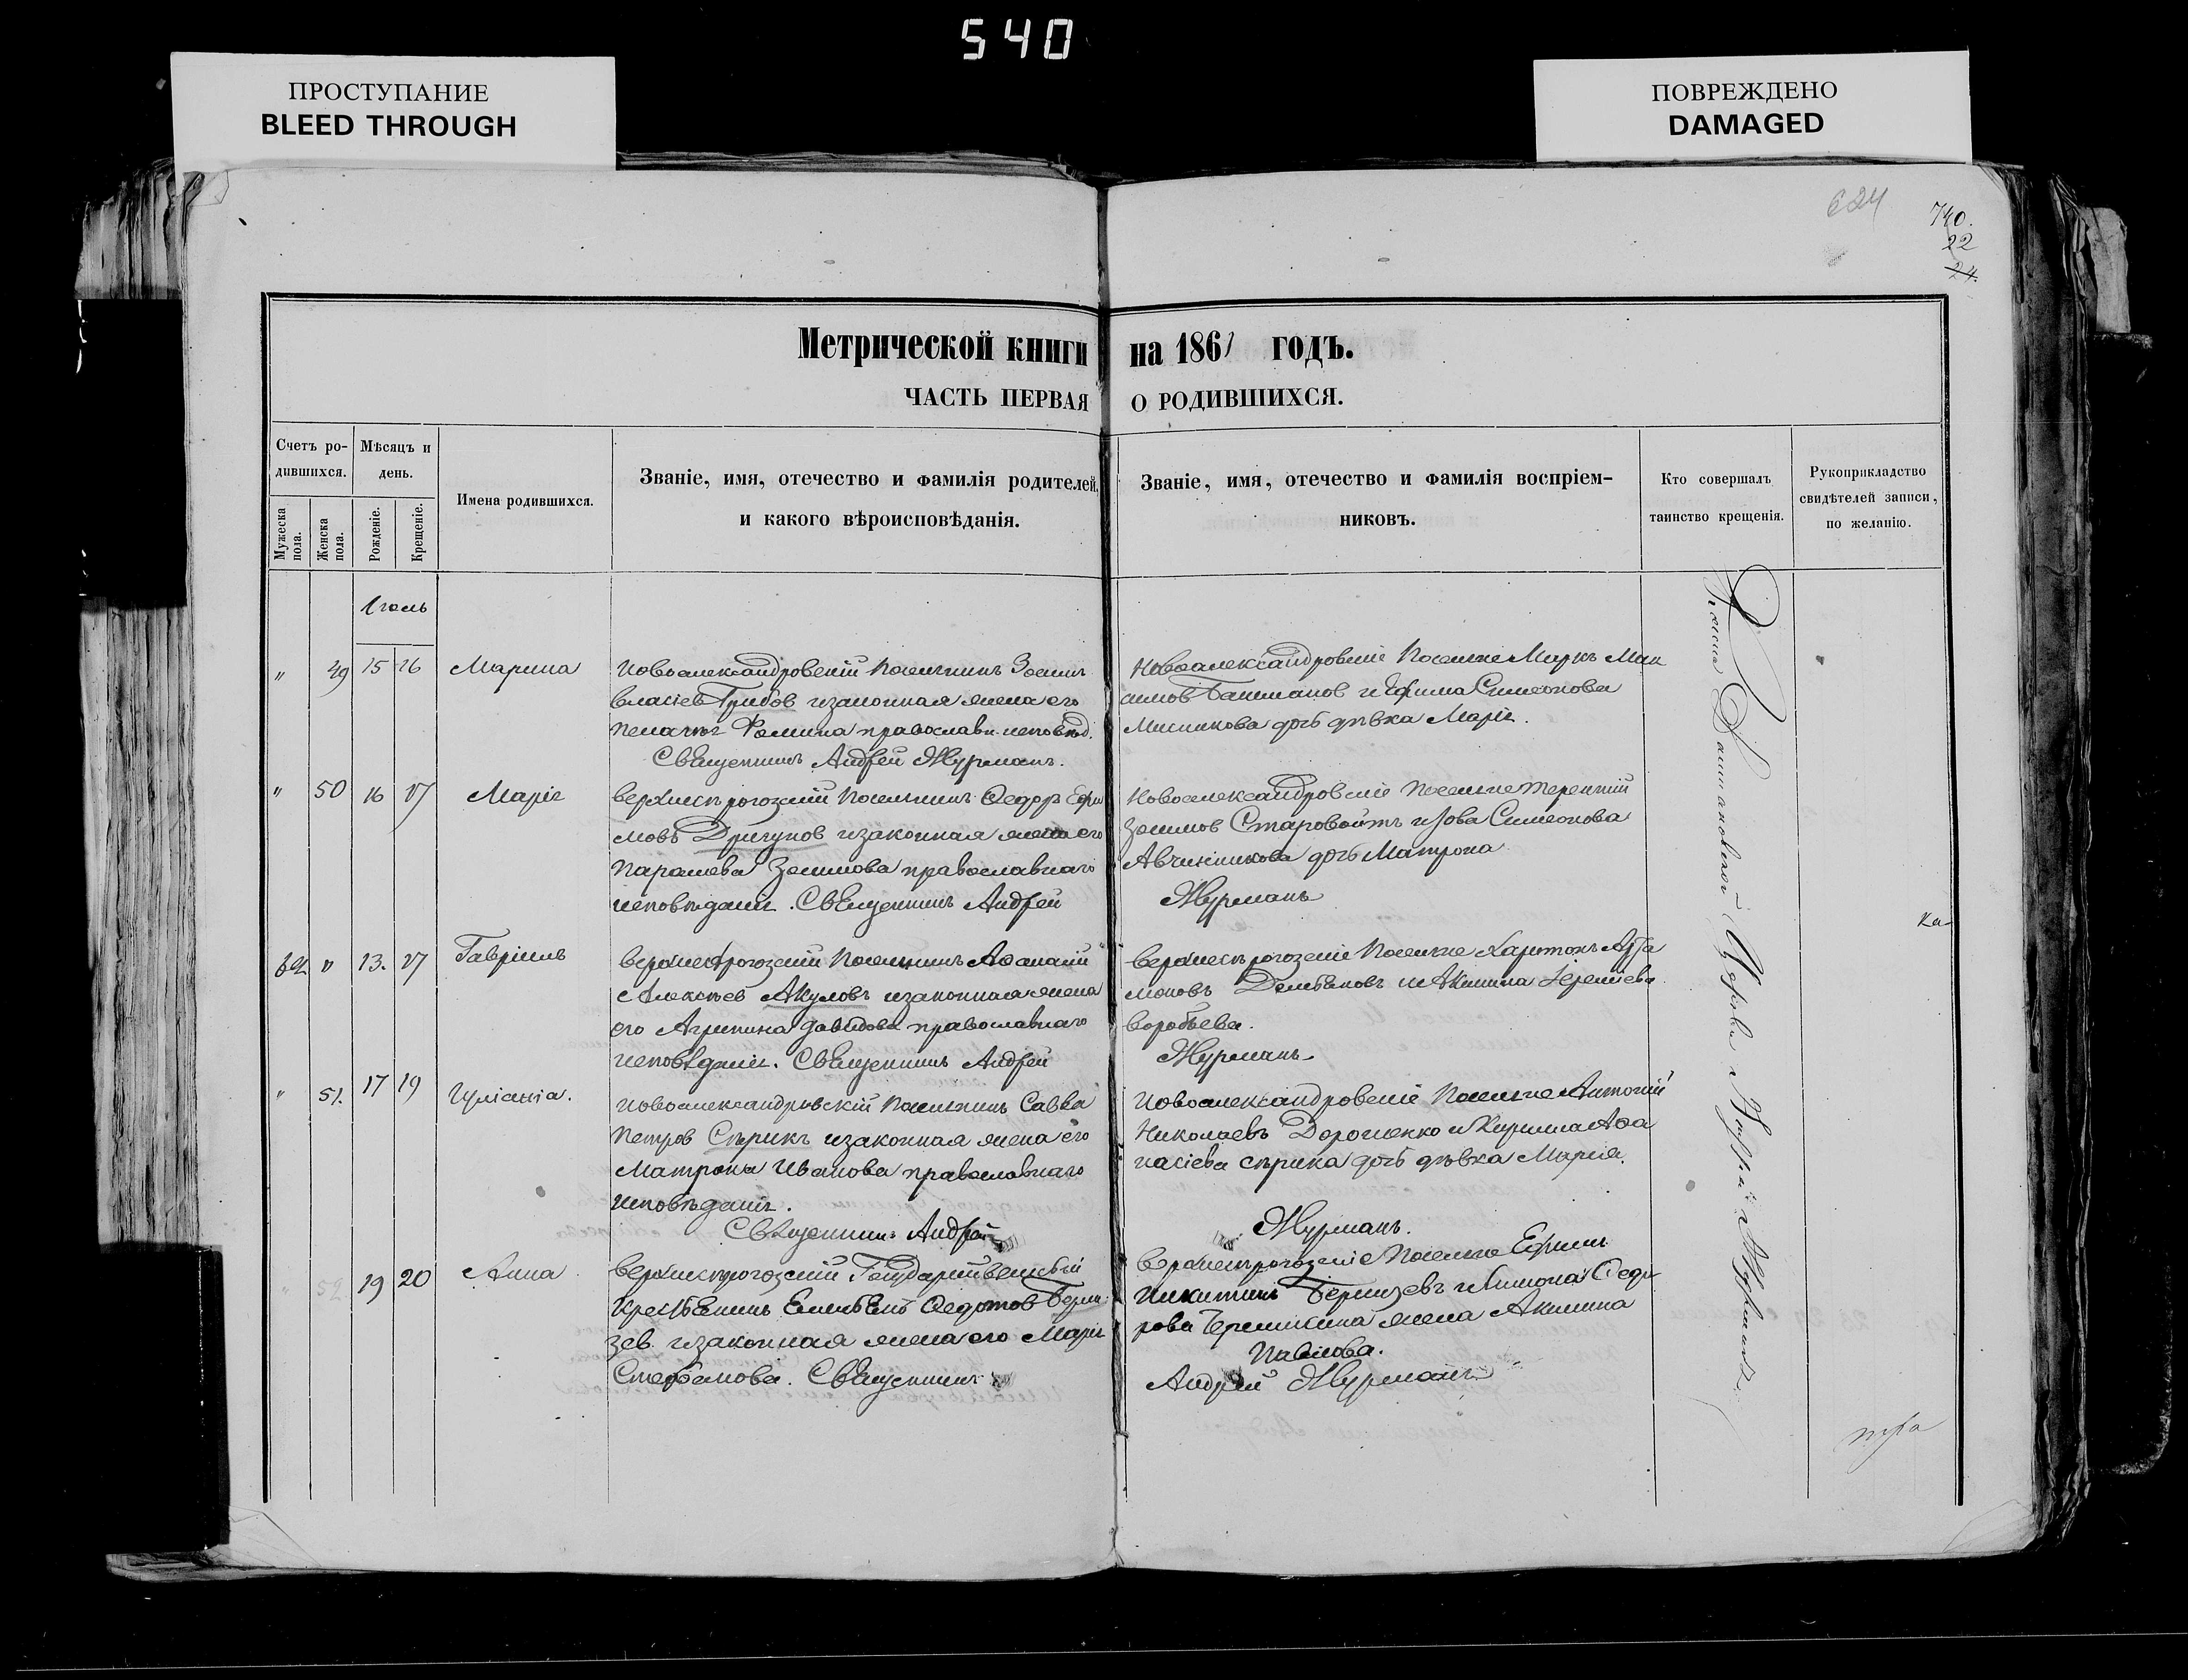 540
ПРОСТУПАНИЕ
BLEED THROUGH
ПОВРЕЖДЕНО
DAMAGED
624
740.
22
24.
Метрической книги на 1861 годъ.
ЧАСТЬ ПЕРВАЯ О РОДИВШИХСЯ.
Счетъ ро-
дившихся.
Мужеска пола.
Женска пола.
Мѣсяцъ и
день.
Рожденіе.
Крещеніе.
Имена родившихся.
Званіе, имя, отечество и фамилія родителей,
и какого вѣроисповѣданія.
Званіе, имя, отечество и фамилія воспріем-
никовъ.
Кто совершалъ
таинство крещенія.
Рукоприкладство
свидѣтелей записи,
по желанію.
Іюль
" 49 15 16 Марина
Новоалександровскій Поселянинъ Зосимъ
Власіев Грибов и законная жена его
Пелагія Фомина православн. исповѣд.
Священникъ Андрей Журманъ.
Новоалександровскіе Поселяне Маркъ Мак
симов Башманов и Ефима Симеонова
дочь дѣвка Марія.
" 50 16 17 Марія
Верхнерогозскій Поселянинъ Ѳедоръ Ефи
мовъ Дригунов и законная жена его
Параскева Зосимова православнаго
исповѣданія. Священникъ Андрей
Новоалександровскіе Поселяне Терентій
Зосимов Старовойтъ и Іова Симеонова
Авчинникова дочь Матрона
Журманъ
52 " 13. 17 Гавріилъ
Верхнерогозскій Поселянинъ Аѳанасій
Алексѣев Акуловъ и законная жена
его Агрипина Давидова православнаго
исповѣданія. Священникъ Андрей
Верхнерогозскіе Поселяне Харитонъ Арта
моновъ и Акилина Іеремѣева
Воробьева.
Журманъ
" 51. 17 19 Іуліанія.
Новоалександровскій Поселянинъ Савва
Петров Сѣрикъ и законная жена его
Матрона Иванова православнаго
исповѣданія.
Священникъ Андрей
Новоалександровскіе Поселяне Антоній
Николаевъ Дорошенко и Кирилла Аѳа
насіева Сѣрика дочь дѣвка Марія.
Журманъ.
" 52 19 20 Анна
Верхнерогозскій Государственный
Крестьянинъ Емельянъ Ѳедотов Берин
зев и законная жена его Марія
Стефанова. Священникъ
Верхнерогозскіе Поселяне Ефимъ
Никитинъ Беринзевъ и Ѳедо
рова жена Акилина
Павлова.
Андрей Журманъ
Церкви Андрей Журманъ
ка